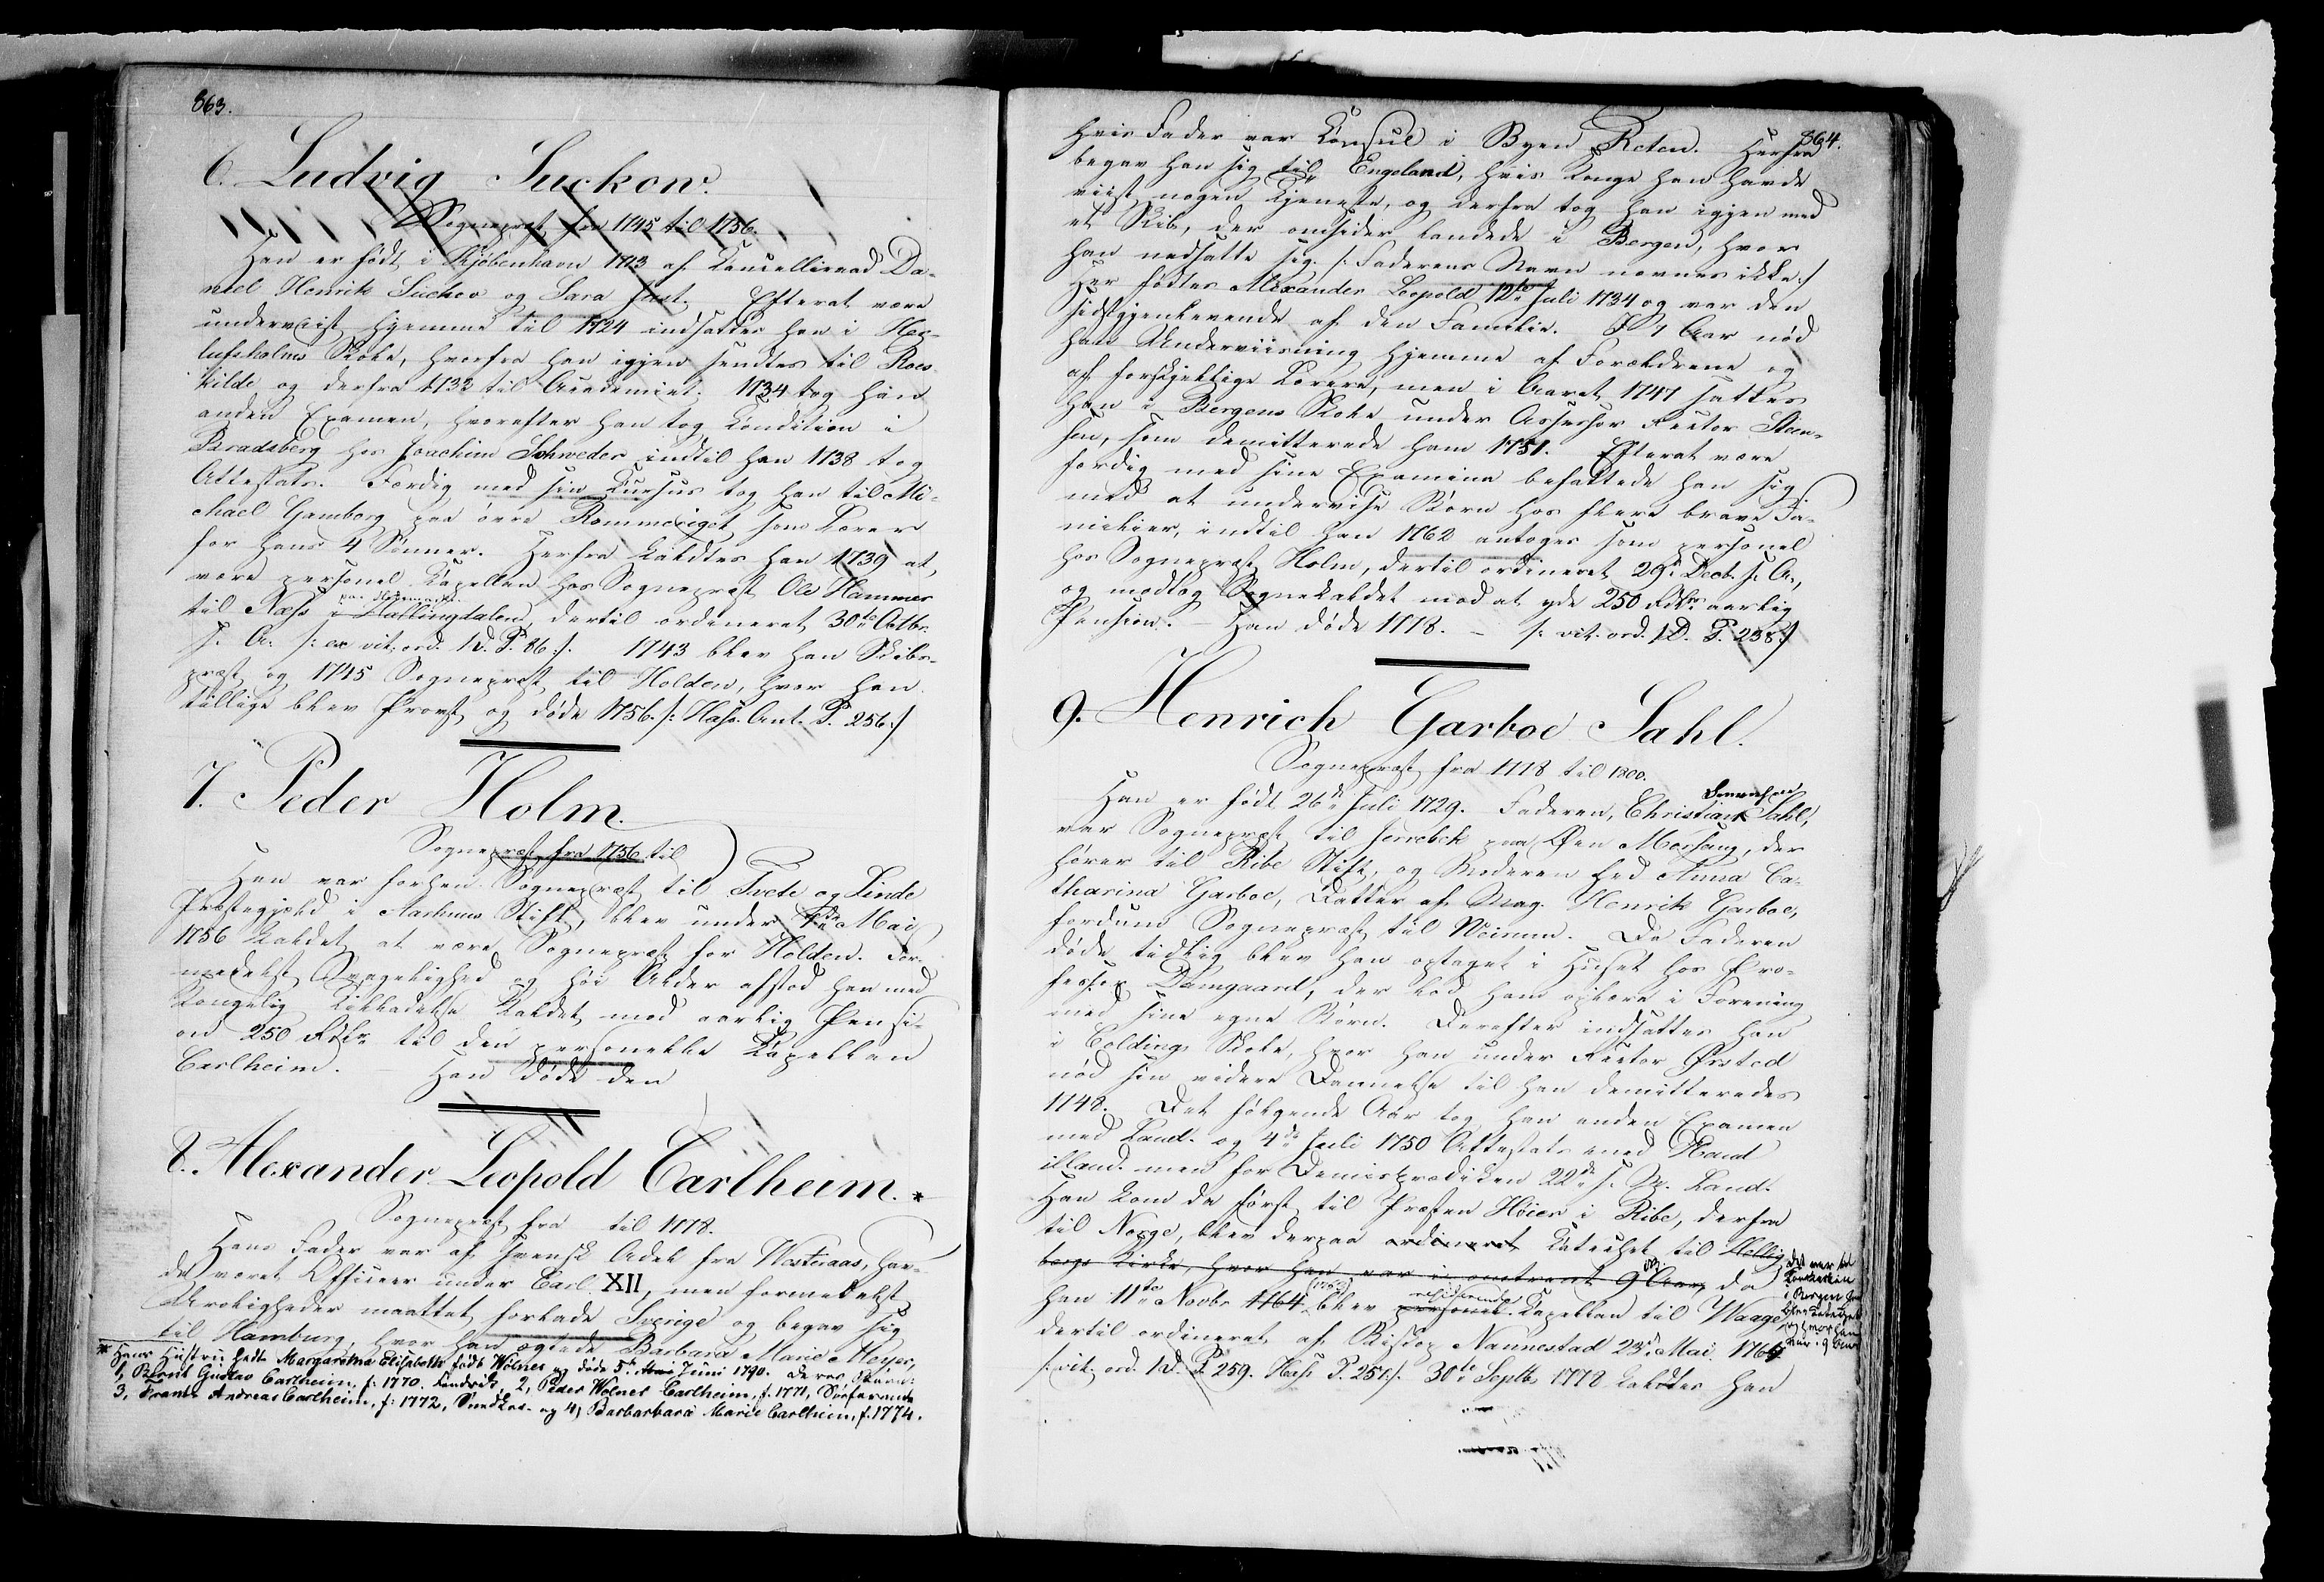 863.
6. Ludvig Suckow.
Sognepræst fra 1745 til 1756.
Han er født i Kjøbenhavn 1713 af Cancelliraad Da-
niel Henrik Suckov og Sara Just. Efterat være
underviist hjemme til 1724 indsattes han i Her-
lufsholms Skole, hvorfra han igjen sendtes til Roes-
kilde og derfra 1732 til Academiet. 1734 tog han
anden Examen, hvorefter han tog Condition i
Bradsberg hos Joachim Schweder indtil han 1738 tog
Attestats. Færdig med sin Cursus tog han til Mi-
chael Gamborg paa øvre Rommeriget som Lærer
for hans 4 Sønner. Herfra kaldtes han 1739 at
være personel Kapellan hos Sognepræst Ole Hammer
til Næss i Hallingdalen, dertil ordineret 30te Octbr.
paa Hedemarken
s. A. /: ex vit. ord. 1 D. P. 86 :/. 1743 blev han Skibs-
præst og 1745 Sognepræst til Holden, hvor han
tillige blev Provst og døde 1756. /: Hass. Ant. P. 256 :/
7. Peder Holm.
Sognepræst fra 1756 til
Han var forhen Sognepræst til Tvede og Linde
Præstegjæld i Aarhuus Stift, blev under 7de Mai
1756 kaldet at være Sognepræst for Holden. For-
medelst Svagelighed og høi Alder afstod han med
Kongelig Tilladelse Kaldet mod aarlig Pensi-
on 250 Rdlr. til den personelle Capellan
Carlheim. Han døde den
8. Alexander Leopold Carlheim. *
Sognepræst fra til 1778.
Hans Fader var af Svensk Adel fra Westeraas, hav-
de været Officeer under Carl XII, men formedelst
Uroligheder maattet forlade Sverige og begav sig
til Hamburg, hvor han ægtede Barbara Marie Meyer,
* Hans Hustru hedte Margaretha Elisabeth født Wølner og døde 5te Juni 1790. De var Børn:
1, Bernt Gustav Carlheim, f. 1770. 2, Peder Wølner Carlheim, f. 1771,
3, Frants Andreas Carlheim, f. 1772, og 4, Barbarbara Marie Carlheim, f. 1774.
864.
hvis Fader var Consul i Byen Reten. Herfra
begav han sig til Engeland, hvis Konge han havde
viist nogen Tjeneste, og derfra tog han igjen med
et Skib, der omsider landede i Bergen, hvor
han nedsatte sig. /: Faderens Navn nævnes ikke :/
Her fødtes Alexander Leopold 12te Juli 1734 og var den
sidstgjenlevende af den Familie. I 7 Aar nød
han Underviisning hjemme af Forældrene og
af forskjellige Lærere, men i Aaret 1747 sattes
han i Bergens Skole under Assessor Rector Steen-
sen, som demitterede ham 1751. Efterat være
færdig med sine Examina befattede han sig
med at undervise Børn hos flere brave Fa-
milier, indtil han 1762 antoges som personel
hos Sognepræst Holm, dertil ordineret 29de Decb. s. A.,
og modtog Sognekaldet mod at yde 250 Rdlr. aarlig
Pension. – Han døde 1778. – /: vit. ord. 1 D. P. 238 :/
9. Henrich Garboe Sahl.
Sognepræst fra 1778 til 1800.
Han er født 26de Juli 1729. Faderen, Christian Sahl,
var Sognepræst til Jerrebek paa Øen Morsøng, der
hører til Ribe Stift, og Moderen hed Anna Ca-
tharina Garboe, Datter af Mag. Henrik Garboe,
fordum Sognepræst til Weirum. Da Faderen
døde tidlig blev han optaget i Huset hos Pro-
fessor Damgaard, der lod ham oplære i Forening
med sine egne Børn. Derefter indsattes han
i Coldings Skole, hvor han under Rector Ørsted
nød sin videre Dannelse til han demitteredes
1748. Det følgende Aar tog han anden Examen
med Laud. og 4de Juli 1750 Attestats med Haud
illaud. men for Demisprædiken 22de s. M. Laud.
Han kom da først til Præsten Høier i Ribe, derfra
til Norge, blev derpaa ordineret Catechet til Hellig
Kirke, hvor han var i omtrent 9 Aar, da
han 11te Novbr. 1764 blev personel Capellan til Waage,
(1763)
residerende
dertil ordineret af Biskop Nannestad 23de Mai 1764
/: vit. ord. 1 D. P. 259. Hass P. 251 :/. 30te Septb. 1778 kaldtes han
det var
i Bergen
og hvor han
var i 9 Aar